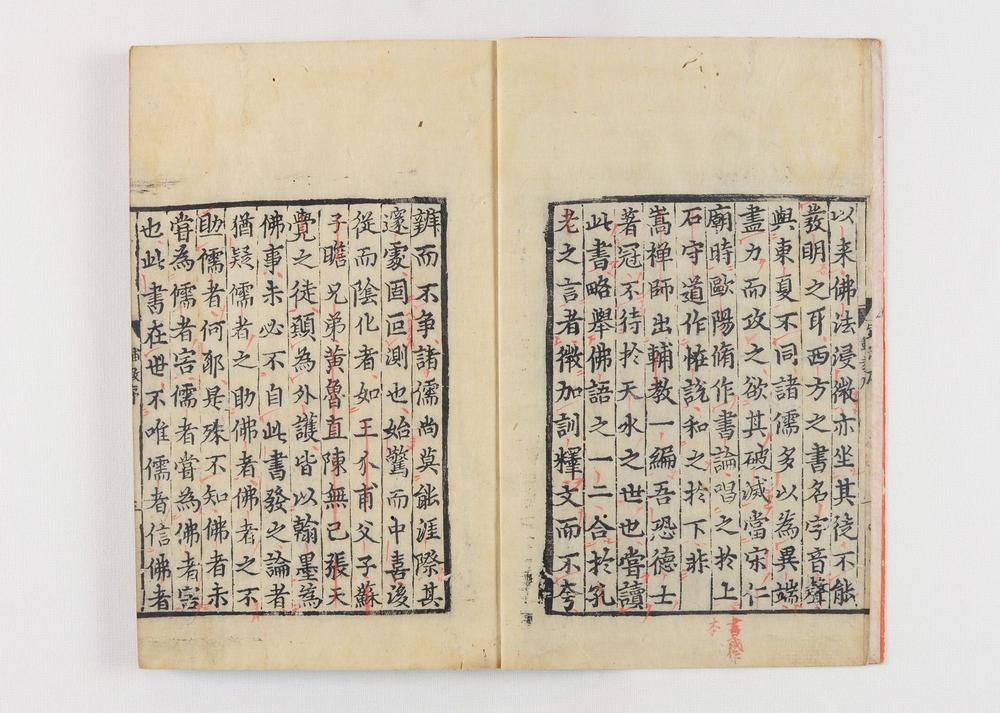 以来佛法浸微亦坐其徒不能
發明之耳西方之書名字音聲
與東夏不同諸儒多以為異端
盡力而攻之欲其破滅當宋仁
廟時歐陽脩作書論唱之於上
石守道作恠說和之於下非
嵩禅師出輔教一編吾恐德士
著冠不待於天水之世也嘗讀
此書略舉佛語之一二合於孔
老之言者微加訓釋文而不夸
辤而不争諸儒尚莫能涯際其
邃處固叵測也始驚而中喜後
從而陰化者如王介甫父子蘇
子瞻兄弟黄魯直陳無己張天
覺之徒頚為外護皆以翰墨為
佛事未必不自此書發之論者
猶疑儒者之助佛者佛者之不
助儒者何耶是殊不知佛者未
嘗為儒者害儒者嘗為佛者害
也此書在世不唯儒者信佛者
書或作
本